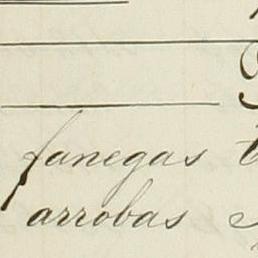 fanegas
arrobas